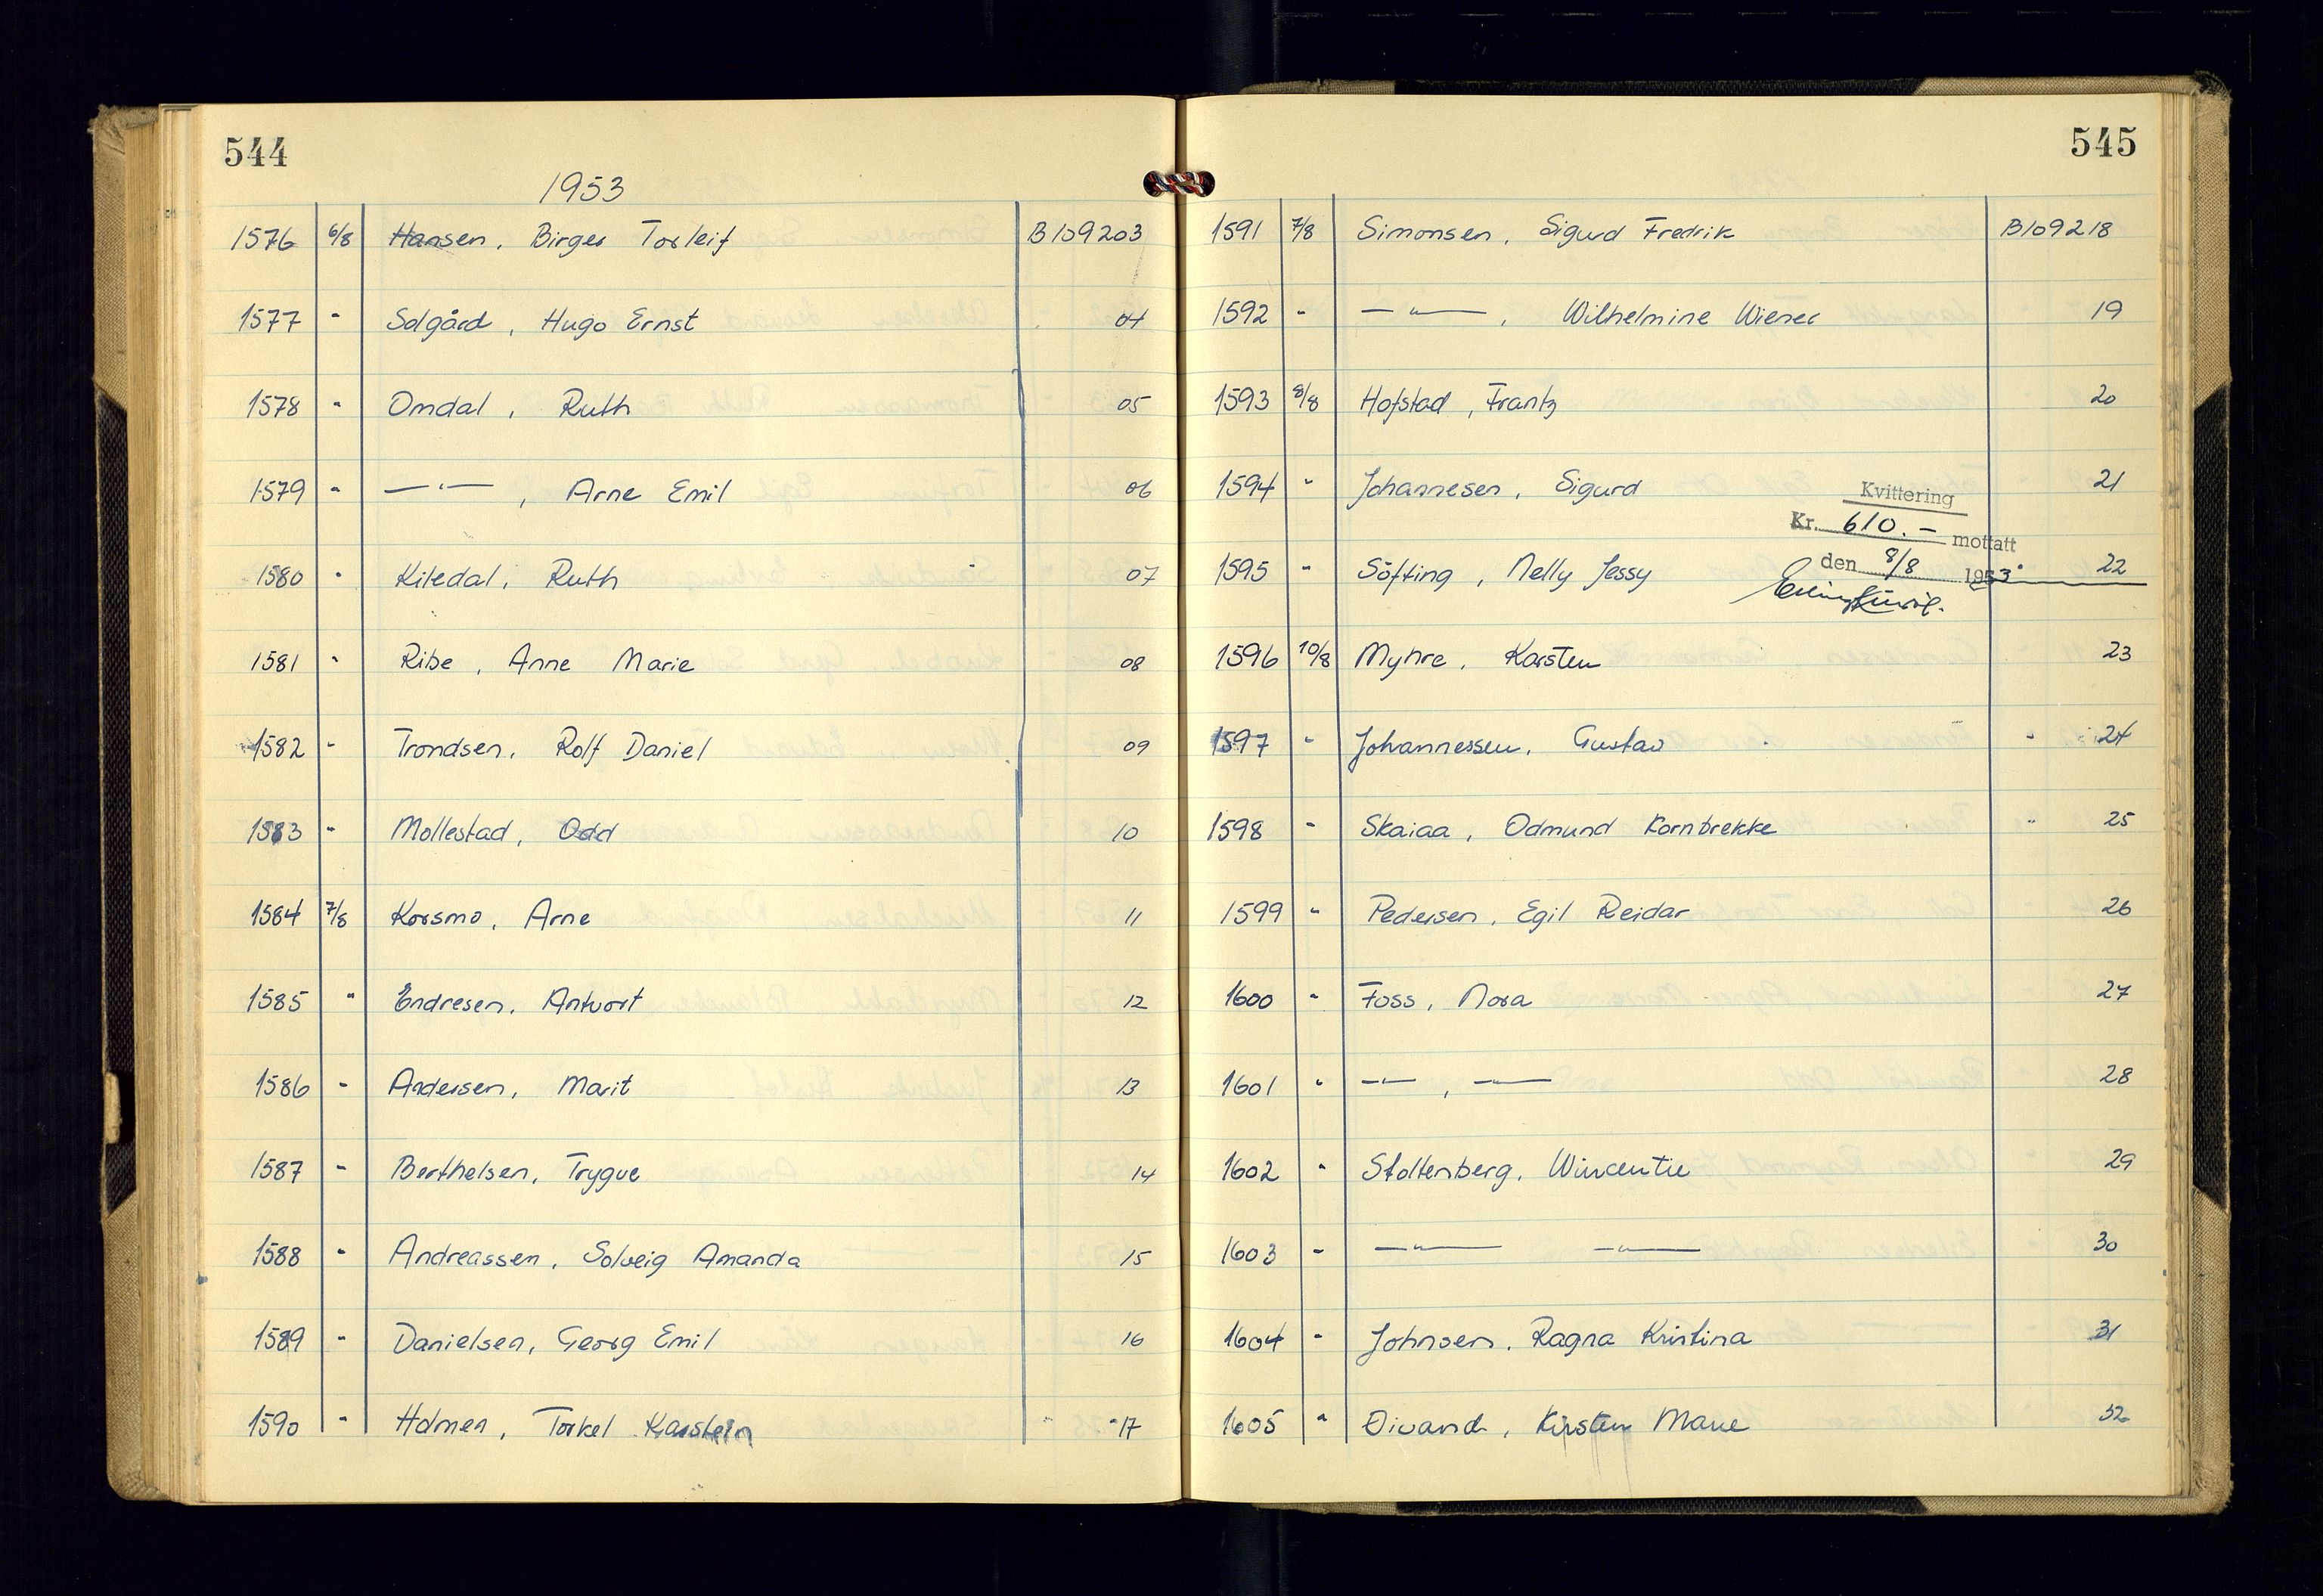 544
1953
1576 6/8 Hansen, Birger Torleif B109203
1577 " Solgård, Hugo Ernst 04
1578 " Omdal, Ruth 05
1579 " —"—, Arne Emil 06
1580 " Kiledal, Ruth 07
1581 " Ribe, Anne Marie 08
1582 " Trondsen, Rolf Daniel 09
1583 " Mollestad, Odd 10
1584 7/8 Korsmo, Arne 11
1585 " Endresen, Antvort 12
1586 " Andersen, Marit 13
1587 " Berthelsen, Trygve 14
1588 " Andreassen, Solveig Amanda 15
1589 " Danielsen, Georg Emil 16
1590 " Holmen, Torkel Karstein " 17
545
1591 7/8 Simonsen, Sigurd Fredrik B109218
1592 " —"—, Wilhelmine Wiener 19
1593 8/8 Hofstad, Frantz 20
1594 " Johannesen, Sigurd 21
Kvittering
Kr. 610.- mottatt
den 8/8 1953
1595 " Söfting, Nelly Jessy 22
1596 10/8 Myhre, Karsten 23
1597 " Johannessen, Gustav " 24
1598 " Skaiaa, Odmund Kornbrekke " 25
1599 " Pedersen, Egil Reidar 26
1600 " Foss, Nora 27
1601 " —"—, —"— 28
1602 " Stoltenberg, Wincentie 29
1603 " —"— —"— 30
1604 " Johnsen, Ragna Kristina 31
1605 " Øivand, Kirsten Marie 32